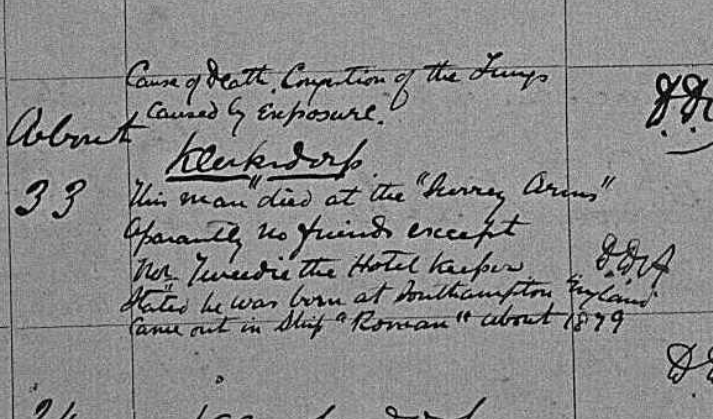 Cause of Death. Congestion of the Lungs
Caused by Exposure.
About
33
Klerksdorp
This man died at the "Surrey Arms"
Aparantly no friends except
Mr. Tweedie the Hotel Keeper
Stated he was born at Southampton England
Came out in Ship "Roman" about 1879